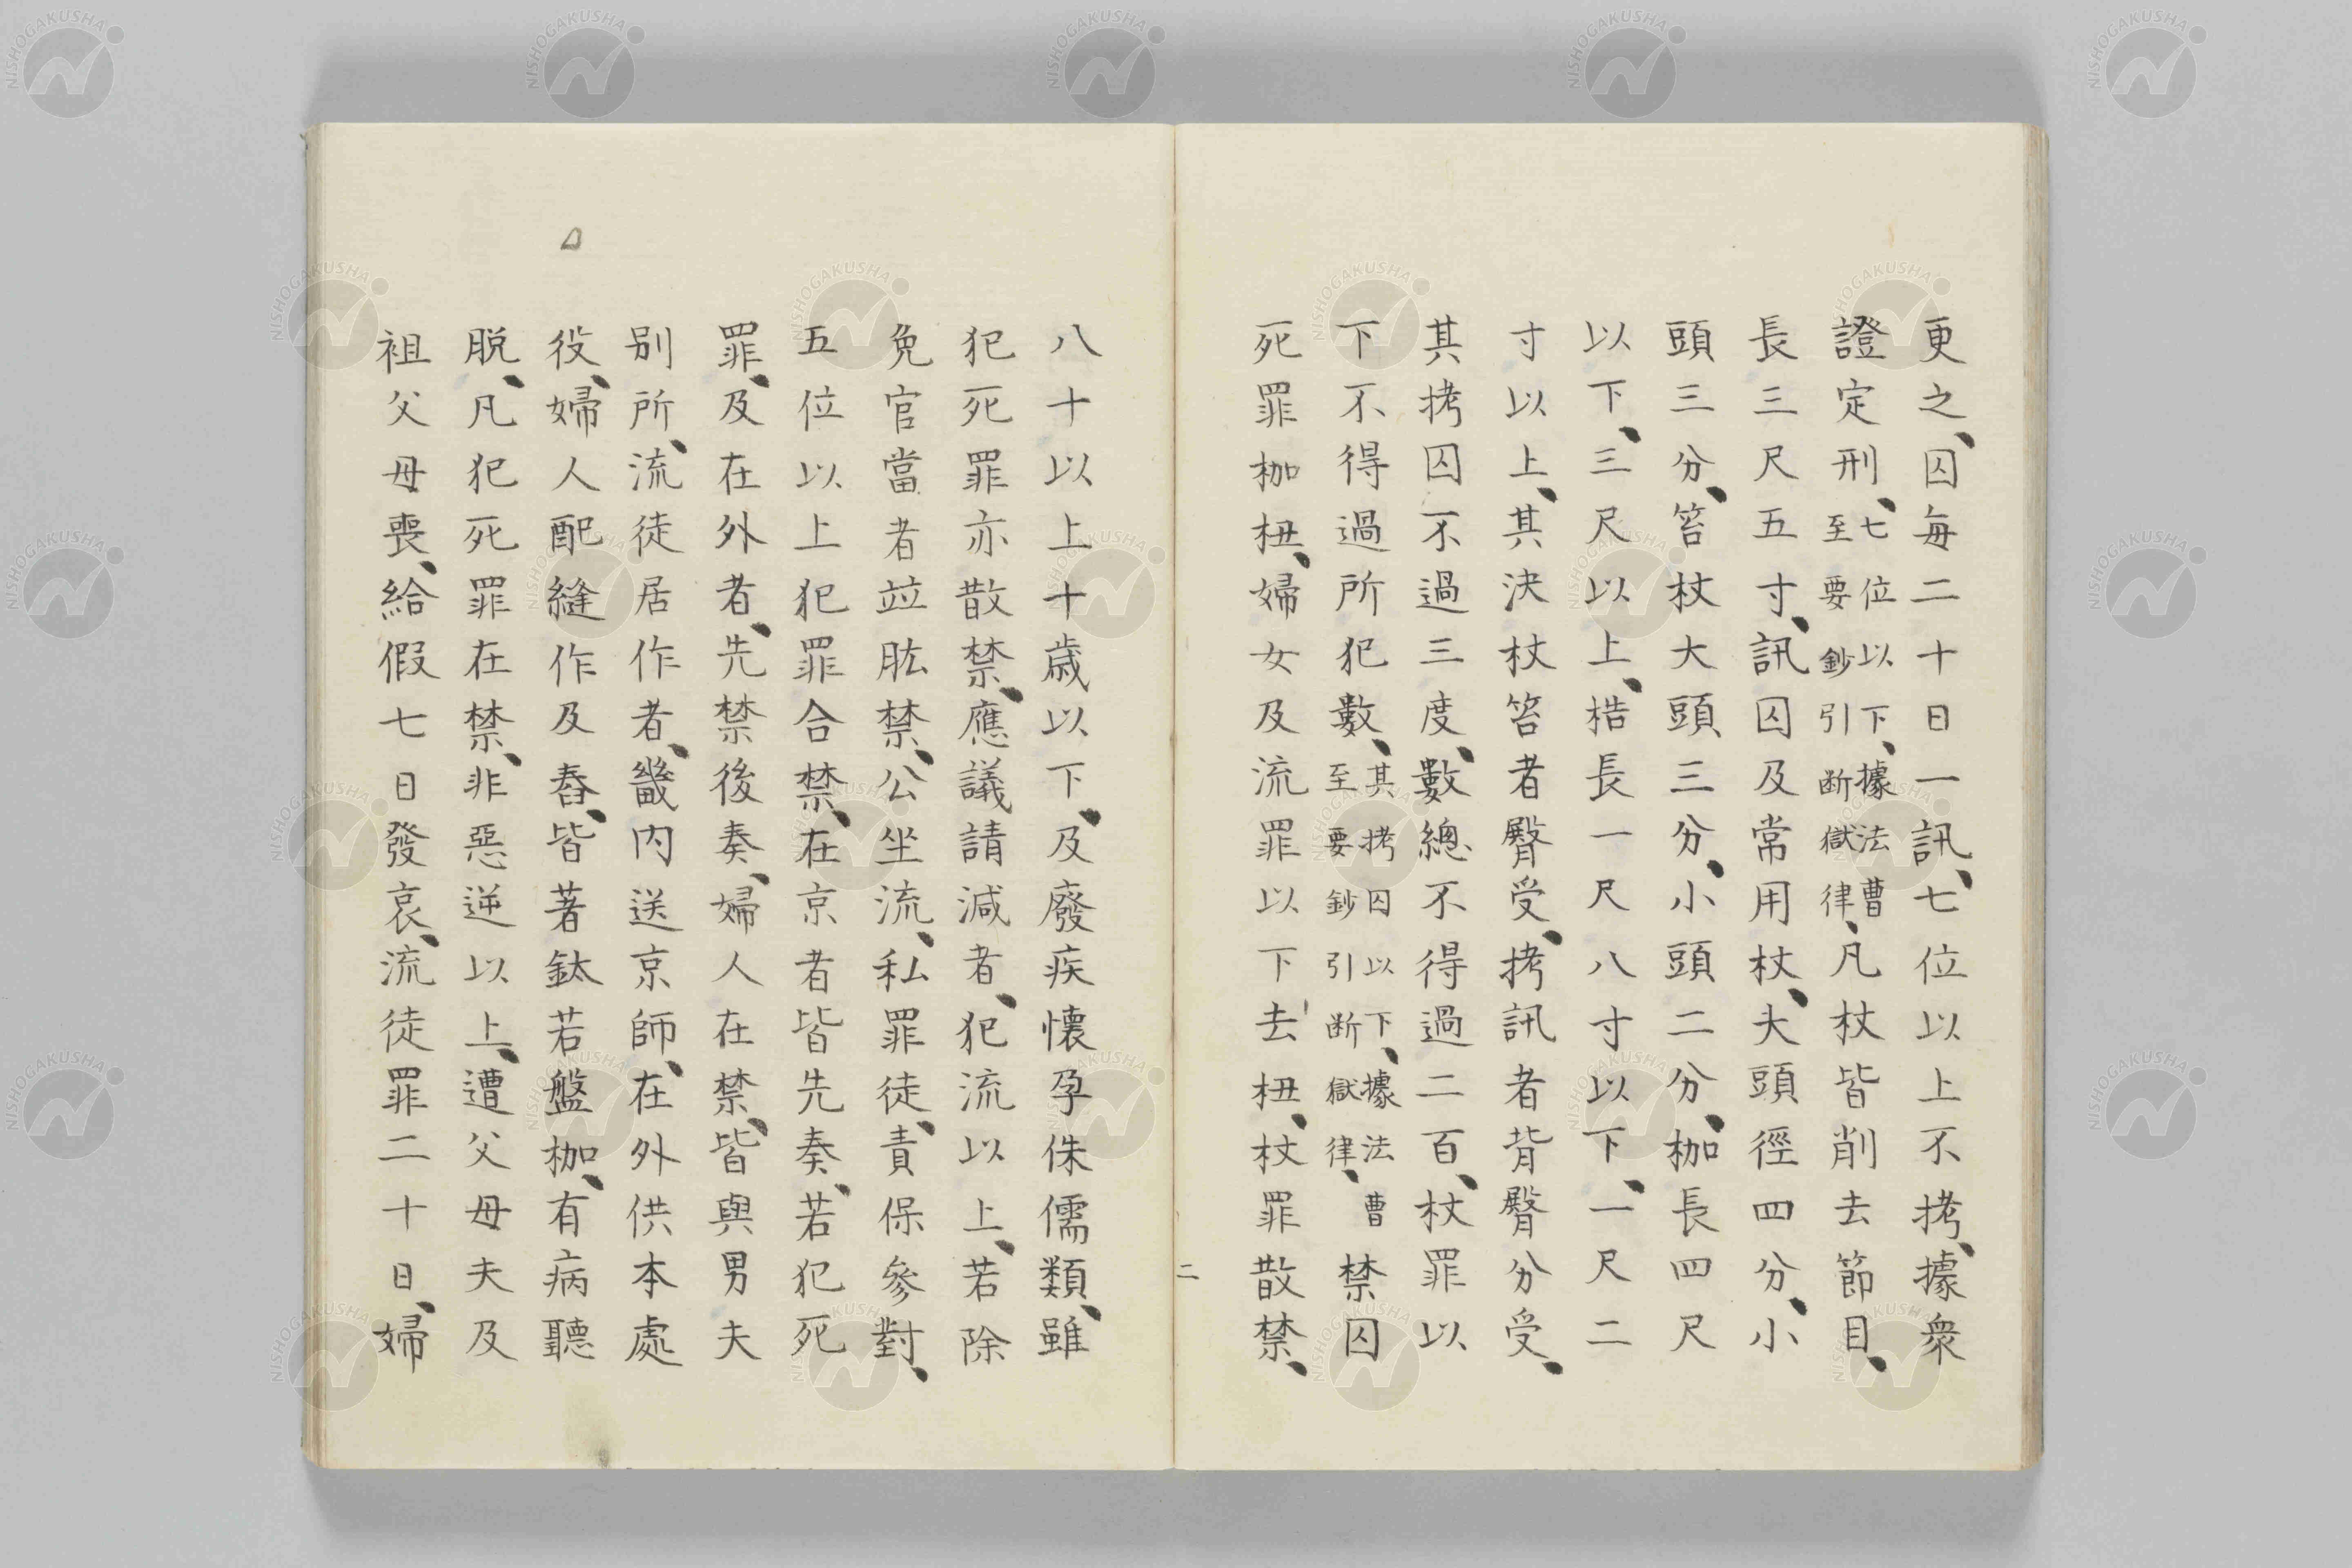 更之、囚每二十日一訊、七位以上不拷、據衆
證定刑、七位以下、據法曹至要鈔引断獄律、凡杖皆削去節目、
長三尺五寸、訊囚及常用杖、大頭徑四分、小
頭三分、笞杖大頭三分、小頭二分、枷長四尺
以下、三尺以上、梏長一尺八寸以下、一尺二
寸以上、其決杖笞者臀受、拷訊者背臀分受、
其拷囚不過三度、數總不得過二百、杖罪以
下不得過所犯數、其拷囚以下、據法曹至要鈔引断獄律、禁囚
死罪枷杻、婦女及流罪以下去杻、杖罪散禁、
二
八十以上十歳以下、及廢疾懷孕侏儒類、雖
犯死罪亦散禁、應議請減者、犯流以上、若除
免官當者竝肱禁、公坐流、私罪徒、責保參對、
五位以上犯罪合禁、在京者皆先奏、若犯死
罪、及在外者、先禁後奏、婦人在禁、皆與男夫
別所、流徒居作者、畿内送京師、在外供本處
役、婦人配縫作及舂、皆著鈦若盤枷、有病聽
脱、凡犯死罪在禁、非惡逆以上、遭父母夫及
祖父母喪、給假七日發哀、流徒罪二十日、婦
NISHOGAKUSHA